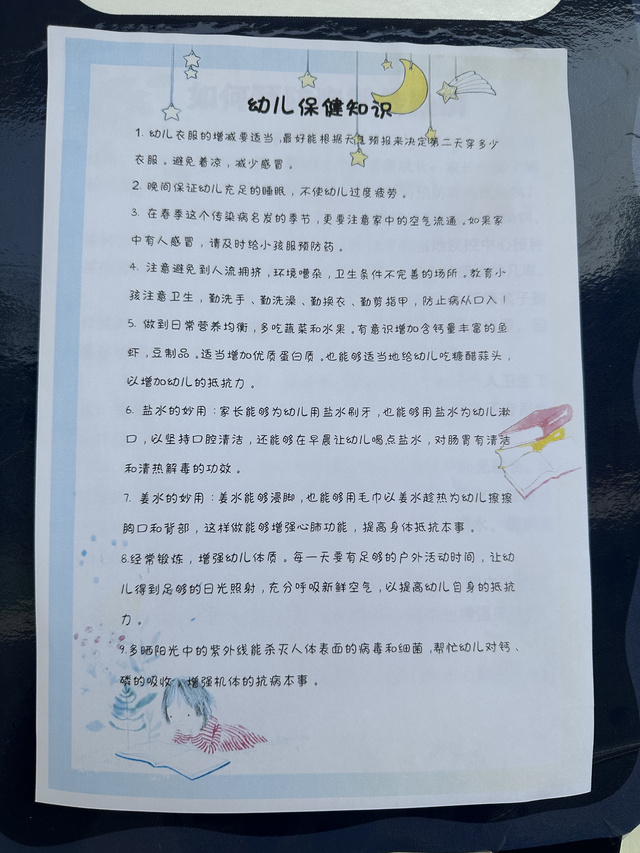 幼儿保健知识
1. 幼儿衣服的增减要适当,最好能根据天气预报来决定第二天穿多少
衣服。避免着凉，减少感冒。
2. 晚间保证幼儿充足的睡眠，不使幼儿过度疲劳。
3. 在春季这个传染病名发的季节，更要注意家中的空气流通。如果家
中有人感冒，请及时给小孩服预防药。
4. 注意避免到人流拥挤，环境嘈杂，卫生条件不完善的场所。教育小
孩注意卫生，勤洗手、勤洗澡、勤换衣、勤剪指甲，防止病从口入！
5. 做到日常营养均衡，多吃蔬菜和水果。有意识增加含钙量丰富的鱼
虾，豆制品。适当增加优质蛋白质。也能够适当地给幼儿吃糖醋蒜头，
以增加幼儿的抵抗力。
6. 盐水的妙用：家长能够为幼儿用盐水刷牙，也能够用盐水为幼儿漱
口，以坚持口腔清洁，还能够在早晨让幼儿喝点盐水，对肠胃有清洁
和清热解毒的功效。
7. 姜水的妙用：姜水能够浸脚，也能够用毛巾以姜水趁热为幼儿擦擦
胸口和背部，这样做能够增强心肺功能，提高身体抵抗本事。
8.经常锻炼，增强幼儿体质。每一天要有足够的户外活动时间，让幼
儿得到足够的日光照射，充分呼吸新鲜空气，以提高幼儿自身的抵抗
力。
9.多晒阳光中的紫外线能杀灭人体表面的病毒和细菌，帮忙幼儿对钙、
磷的吸收，增强机体的抗病本事。